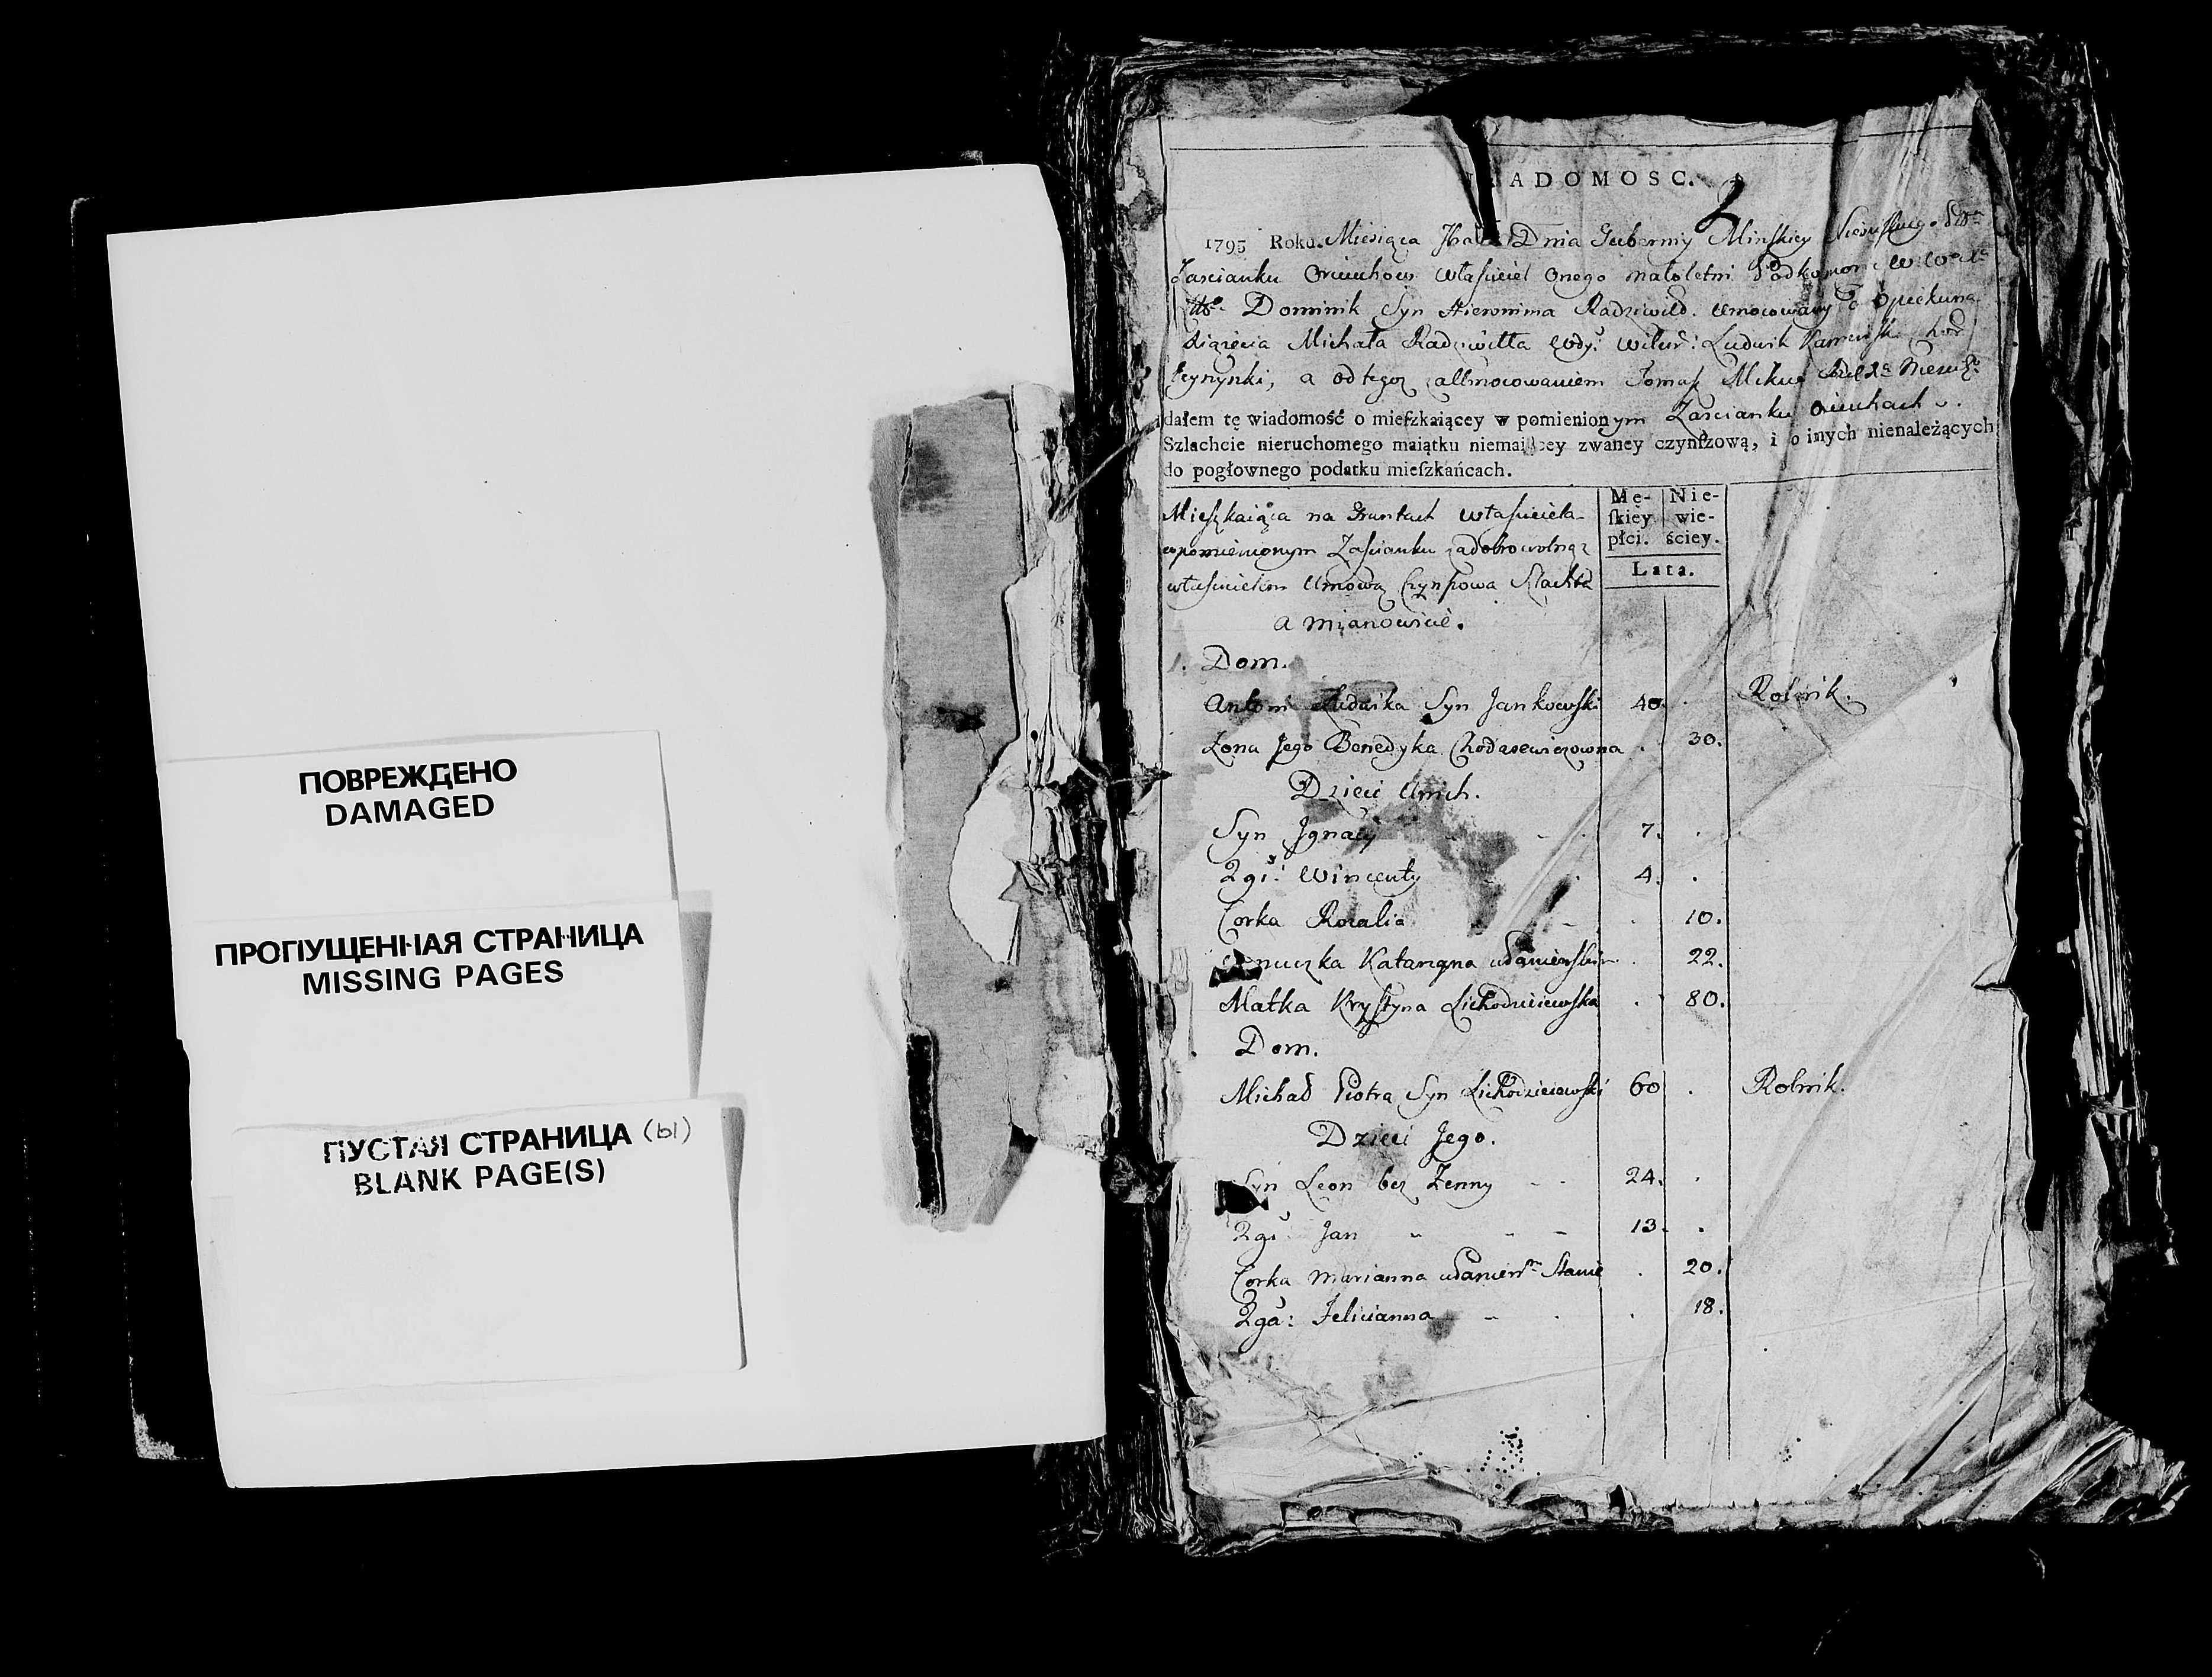 ПОВРЕЖДЕНО
DAMAGED
ПРОПУЩЕННАЯ СТРАНИЦА
MISSING PAGES
ПУСТАЯ СТРАНИЦА (ы)
BLANK PAGE(S)
ADOMOSC.
2
1795 Roku. Miesiąca Dnia Gubernij Minskiey
Zascianku własciciel onego małoletni
Dominik Syn Hieronima Radziwiłł. Umocowany Opiekuna
Xiązęcia Michała Radziwiłła Wdy: Wilen: Ludwik
a od tegoz Tomasz
dałem tę wiadomość o mieſzkaiącey w pomienionym Zascianku
Szlachcie nieruchomego maiątku niemaiącey zwaney czynſzową, i o inych nienależących
do pogłownego podatku mieſzkańcach.
Mieszkaiąca na Gruntach własciciela
w pomienionym Zascianku za dobrowolną z
włascicielem Umową Czynszowa Szlachta
a mianowicie.
Mę-ſkiey płci.
Nie-wie-ściey.
Lata.
1. Dom.
Antoni Ludwika Syn Jankowski 40. . Rolnik.
Zona Jego Benedyka Chodasewiczowna . 30.
Dzieci Umich.
Syn Jgnacy 7. .
2gi: Wincenty 4. .
Corka Rozalia . 10.
Katarzyna . 22.
Matka Krystyna Lichodzieiewska . 80.
Dom.
Michał Piotra Syn Lichodzieiewski 60 . Rolnik.
Dzieci Jego.
Syn Leon bez Zenny 24. .
2gi Jan 13. .
Corka Marianna Stanie . 20.
2ga: Felicianna . 18.